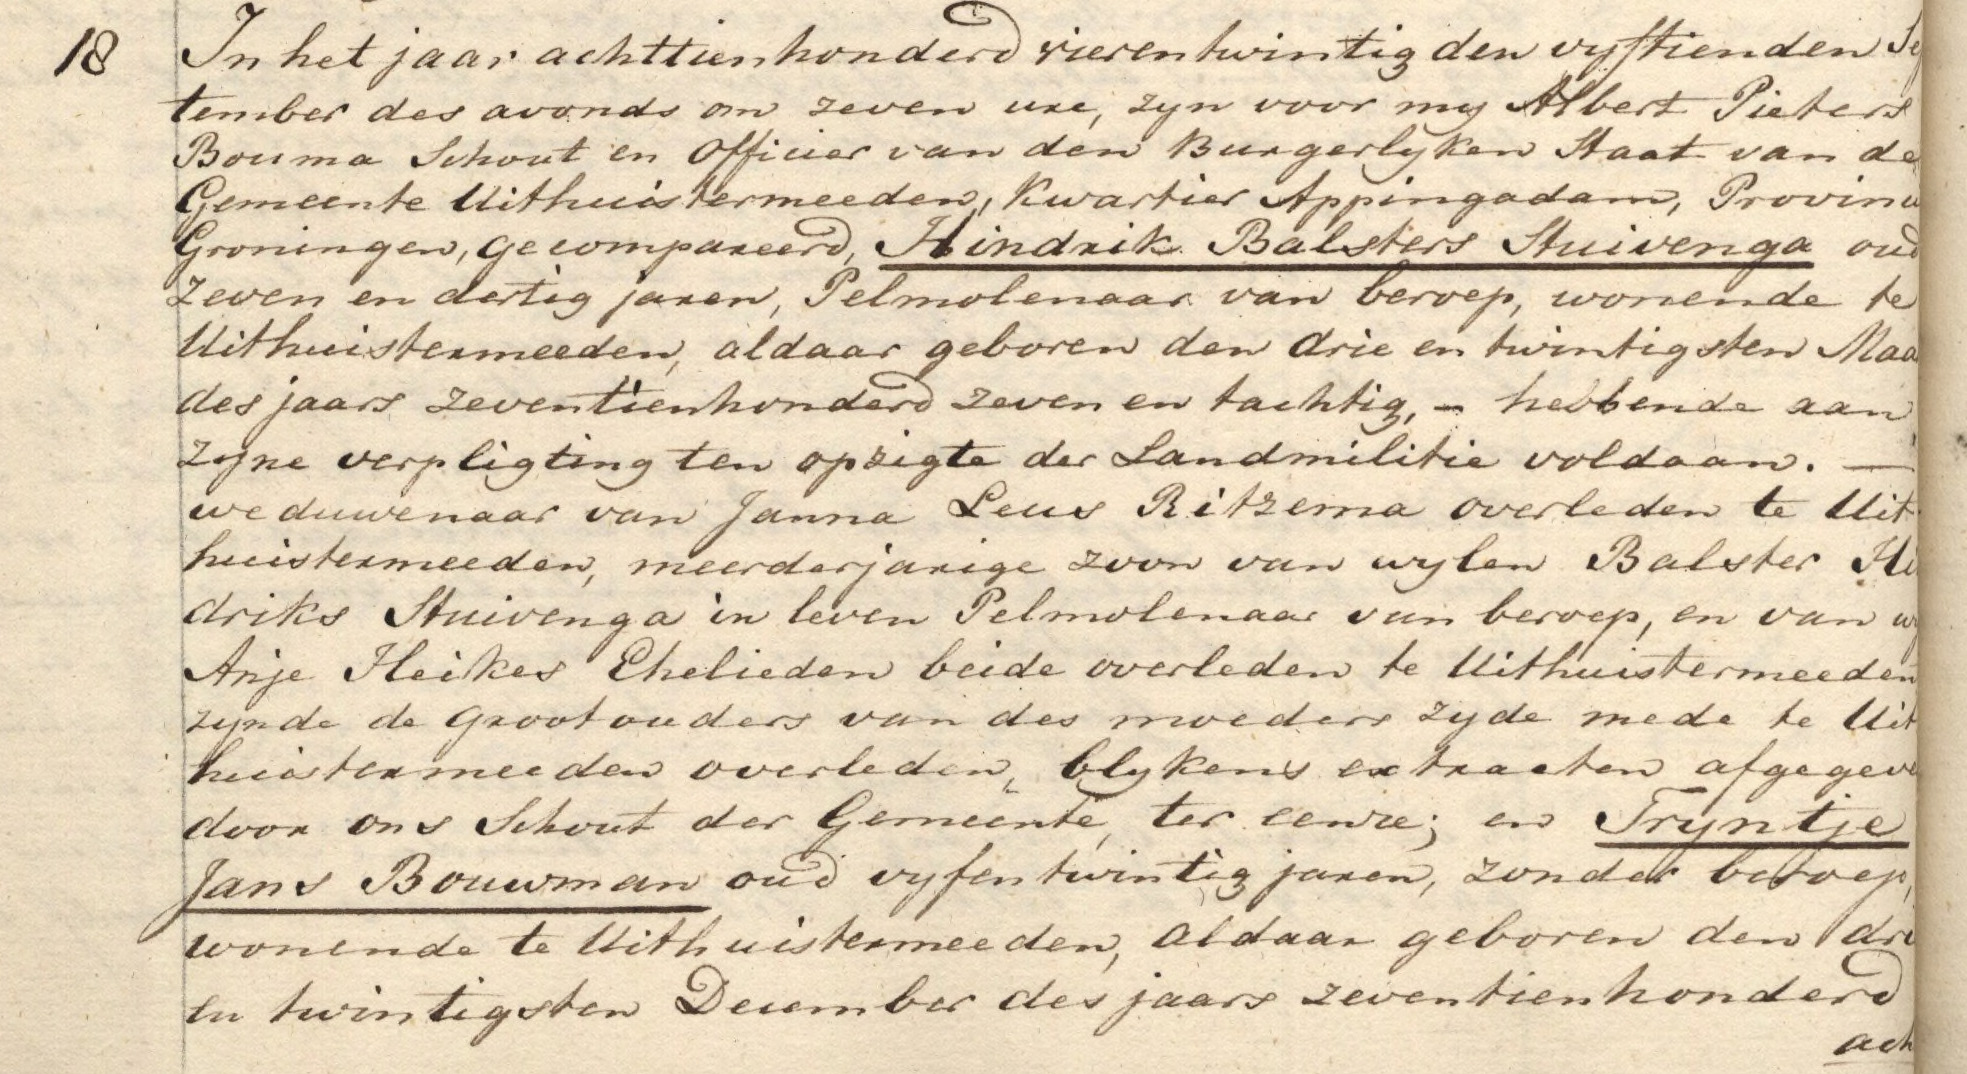 18 In het jaar achttienhonderd vierentwintig den vyftienden Sep
tember des avonds om zeven ure, zyn voor my Albert Pieters
Bouma Schout en Officier van den Burgerlyken Staat van de
Gemeente Uithuistermeeden, Kwartier Appingadam, Provinc
Groningen, gecompareerd, Hindrik Balsters Stuivenga oud
zeven en dertig jaren, Pelmolenaar van beroep, wonende te
Uithuistermeeden, aldaar geboren den drie en twintigsten Maa
des jaars zeventienhonderd zeven en tachtig, – hebbende aan
zyne verpligting ten opzigte der Landmilitie voldaan. —
weduwenaar van Janna Leues Ritzema overleden te Uit
huistermeeden, meerderjarige zoon van wylen Balster Hi
driks Stuivenga in leven Pelmolenaar van beroep, en van wy
Anje Heikes Ehelieden beide overleden te Uithuistermeeden
zynde de Grootouders van des moeders zyde mede te Uit
huistermeeden overleden, blykens extracten afgegeve
door ons Schout der Gemeente, ter eenre; en Tryntje
Jans Bouwman oud vyfentwintig jaren, zonder beroep,
wonende te Uithuistermeeden, aldaar geboren den dri
en twintigsten December des jaars zeventienhonderd
ach